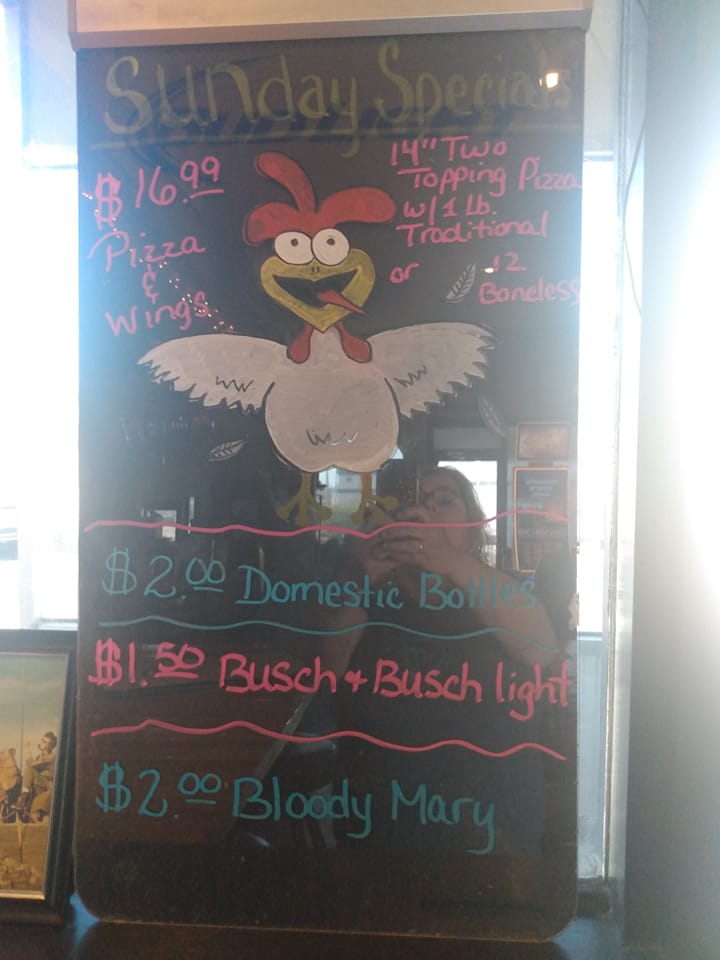 Sunday Specials
$16.99
Pizza
&
Wings
14" Two
Topping Pizza
w/ 1 lb.
Traditional
or 12
Boneless
$2.00 Domestic Bottles
$1.50 Busch & Busch light
$2.00 Bloody Mary